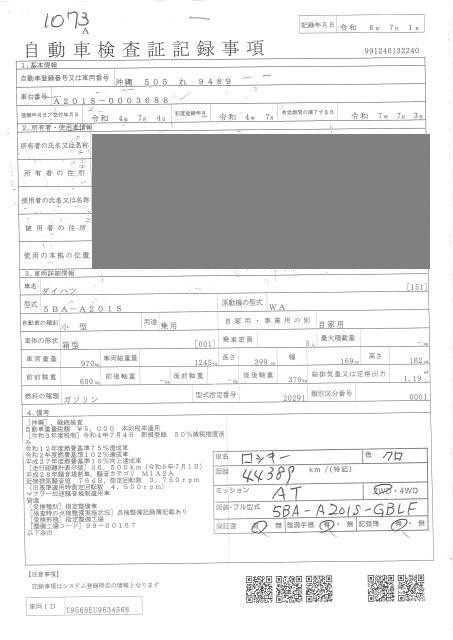 1073
A
記録年月日 令和 6年 7月 1日
自動車検査証記録事項
991240132240
1.基本情報
自動車登録番号又は車両番号 沖縄 505 れ 9489
車台番号 A201S-0003688
登録年月日/交付年月日 令和 4年 7月 4日 初度登録年月 令和 4年 7月 有効期間の満了する日 令和 7年 7月 3日
2.所有者・使用者情報
所有者の氏名又は名称
所有者の住所
使用者の氏名又は名称
使用者の住所
使用の本拠の位置
3.車両詳細情報
車名 ダイハツ [151]
型式 5BA-A201S 原動機の型式 WA
自動車の種別 小型 用途 乗用 自家用・事業用の別 自家用
車体の形状 箱型 [001] 乗車定員 5人 最大積載量 -kg
車両重量 970kg 車両総重量 1245kg 長さ 399cm 幅 169cm 高さ 162cm
前前軸重 600kg 前後軸重 -kg 後前軸重 -kg 後後軸重 370kg 総排気量又は定格出力 1.19L
燃料の種類 ガソリン 型式指定番号 20291 類別区分番号 0001
4.備考
[沖縄],継続検査
自動車重量税額 ¥5,000 本則税率適用
[令和3年度税制]令和4年7月4日 新規登録 50%減税措置済み
令和12年度燃費基準75%達成車
令和2年度燃費基準102%達成車
平成27年度燃費基準10%向上達成車
[走行距離計表示値]36,500km(令和6年7月1日)
平成28年騒音規制車、騒音カテゴリ M1A2A
近接排気騒音値 76dB、測定回転数 3,750rpm
(旧基準適用時測定回転数 4,500rpm)
マフラー加速騒音規制適用車
[受検種別]指定整備車
[検査時の点検整備実施状況]点検整備記録簿記載あり
[受検形態]指定整備工場
[整備工場コード]99-00167
以下余白
車名 ロッキー 色 クロ
距離 44389 km/(特記)
ミッション AT 2WD・4WD
認識・フル型式 5BA-A201S-GBLF
保証書 有・無 整備手帳 有・無 記録簿 有・無
【注意事項】
記録事項はシステム登録時点の情報となります
車両ID T9568EU9634568